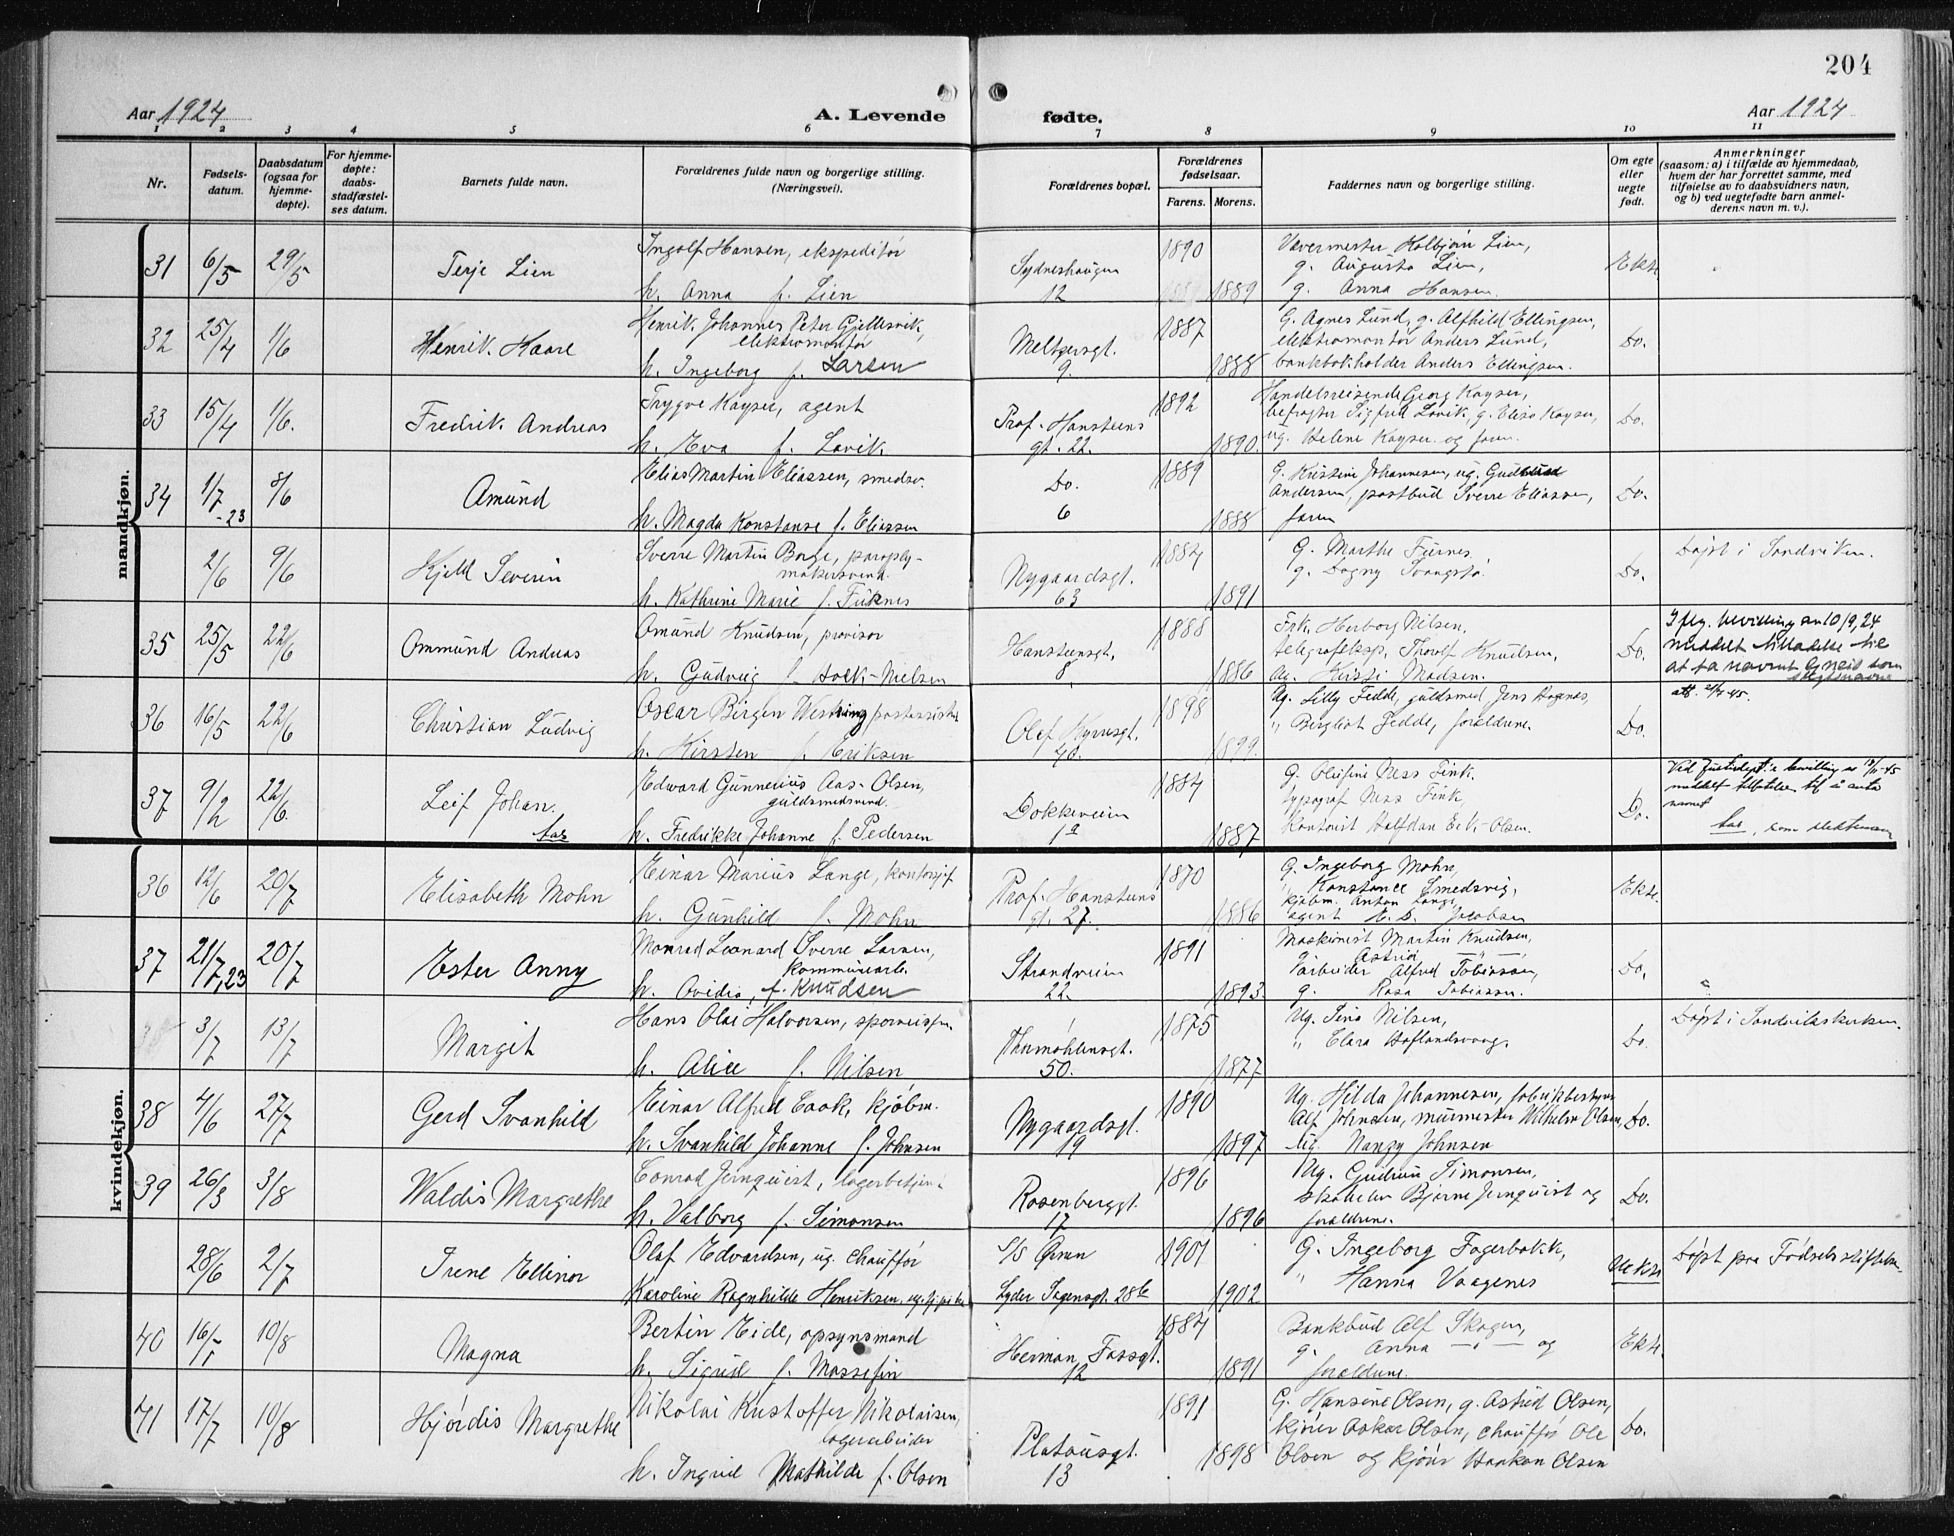 204
Aar 1924
A. Levende
fødte.
Aar 1924
1 2 3 4 5 6 7 8 9 10 11
Nr.
Fødsels-
datum.
Daabsdatum
(ogsaa for
hjemme-
døpte).
For hjemme-
døpte:
daabs-
stadfæstel-
ses datum.
Barnets fulde navn.
Forældrenes fulde navn og borgerlige stilling.
(Næringsvei).
Forældrenes bopæl.
Forældrenes
fødselsaar.
Farens. Morens.
Faddernes navn og borgerlige stilling.
Om egte
eller
uegte
født.
Anmerkninger
(saasom: a) i tilfælde av hjemmedaab,
hvem der har forrettet samme, med
tilføielse av to daabsvidners navn,
og b) ved uegtefødte barn anmel-
derens navn m. v.).
mandkjøn.
31 6/5 29/5 Terje Lien
Ingolf Hansen, ekspeditør
h. Anna f. Lien
Sydneshaugen
12
1890 1889
Vævermester Kolbjørn Lien,
g. Augusta Lien,
g. Anna Hansen.
Ekte.
32 25/4 1/6 Henrik Kaare
Henrik Johannes Peter Gjellesvik,
elektromontør
h. Ingeborg f. Larsen
Meltzersgt.
9.
1887 1888
G. Agnes Lund, g. Alfhild Ellingsen,
elektromontør Anders Lund,
bankbokholder Anders Ellingsen.
Do.
33 15/4 1/6. Fredrik Andreas
Trygve Kayser, agent
h. Eva f. Lavik.
Prof. Hansteens
gt. 22.
1892 1890.
Handelsreisende Georg Kayser,
befragter Sigfred Lavik, g. Elisa Kayser,
ug. Helene Kayser og faren.
Do.
34 1/7 -23 8/6 Amund
Elias Martin Eliassen, smedsv.
h. Magda Konstanse f. Eliassen
Do.
6
1889 1888
G. Kristine Johannesen, ug. Gudrun
Andersen, postbud Sverre Eliassen,
faren
Do.
2/6 9/6 Kjell Severin
Sverre Martin Borge, paraply-
makersvend.
h. Kathrine Marie f. Furnes
Nygaardsgt.
63
1884 1891
G. Marthe Furnes.
g. Dagny Svangstø.
Do.
Døpt i Sandviken.
35 25/5 22/6 Ommund Andreas
Omund Knudsen, provisor
h. Gudvig f. Holk-Nielsen
Hansteensgt.
8
1888 1886
Frk. Herborg Nilsen.
telegrafeksp. Thorolf Knudsen,
ug. Kirsti Madsen.
Do.
Iflg. bevilling av 10/9,24
meddelt tilladelse til
at ta navnet Egneid som
slegtsnavn
36 16/5 22/6 Christian Ludvig
Oscar Birger Westring postassistent
h. Kirsten f. Eriksen
Olaf Kyrresgt.
40.
1898 1899.
Ug. Lilly Fedde, guldsmed Jens Hagenæs,
" Bergliot Fedde, forældrene.
Do.
att. 21/4 45.
37 9/2 22/6 Leif Johan.
Aas
Edward Gunnerius Aas-Olsen,
guldsmedsvend.
h. Fredrikke Johanne f. Pedersen
Dokkeveien
1a
1884 1887
G. Olufine Ness Fink.
typograf Ness Fink,
Kontorist Halfdan Erk-Olsen.
Do.
Ved Justisdept.s bevilling av 13/11-45
meddelt tillatelse til å anta
navnet
Aas, som slektsnavn
kvindekjøn.
36 12/6 20/7 Elisabeth Mohn
Einar Marius Lange, kontorsjef
h. Gunhild f. Mohn
Prof. Hansteens
gt. 27.
1870 1886
G. Ingeborg Mohn,
" Konstance Smedsvig,
kjøbm. Anton Lange,
agent H. D. Jacobsen
Ekte.
37 21/7,23 20/7 Ester Anny
Monrad Leonard Sverre Larsen,
kommunearb.
h. Ovidia, f. Knudsen
Strandveien
22.
1891 1893.
Maskinist Martin Knudsen,
g. Astrid — " —
arbeider Alfred Tobiassen,
g. Rosa Tobiassen.
Do.
3/7 13/7 Margit
Hans Olai Halvorsen, sporveisfu.
h. Alice f. Nilsen
Thormøhlensgt.
50.
1875 1877
Ug. Tina Nilsen,
" Clara Haflandsvaag.
Do.
Døpt i Sandvikskirken.
38 4/6 27/7 Gerd Svanhild
Einar Alfred Cook, kjøbm.
h. Svanhild Johanne f. Johnsen
Nygaardsgt.
19
1890 1897
Ug. Hilda Johannesen, fabrikbestyrer
Alf Johnsen, murmester Wilhelm Olsen,
ug. Nanzy Johnsen
Do.
39 26/3 3/8 Waldis Margrethe
Conrad Jernquist, lagerbetjen.
h. Valborg f. Simonsen
Rosenberggt.
17
1896 1896
Ug. Gudrun Simonsen,
Bjarne Jernquist og
forældrene.
Do.
28/6 2/7 Irene Ellinor
Olaf Edvardsen, ug. chauffør
Karoline Ragnhilde Henriksen, ug. tj.pike
S/S Ørnen
Lyder Sagensgt. 28b
1901 1902
G. Ingeborg Fagerbakk,
" Hanna Vaagenes
Uekte
Døpt paa Fødselsstiftelsen
40 16/5 10/8 Magna
Bertin Eide, opsynsmand
h. Sigrid f. Massefin
Herman Fossgt.
12
1884 1891
Bankbud Alf Skogen,
g. Anna — " — og
forældrene.
Ekte.
41 17/7 10/8 Hjørdis Margrethe
Nikolai Kristoffer Nikolaisen,
lagerarbeider
h. Ingrid Mathilde f. Olsen
Platousgt.
13
1891 1898
G. Hansine Olsen, g. Astrid Olsen,
kjører Oskar Olsen, chauffør Ole
Olsen og kjører Haakon Olsen
Do.